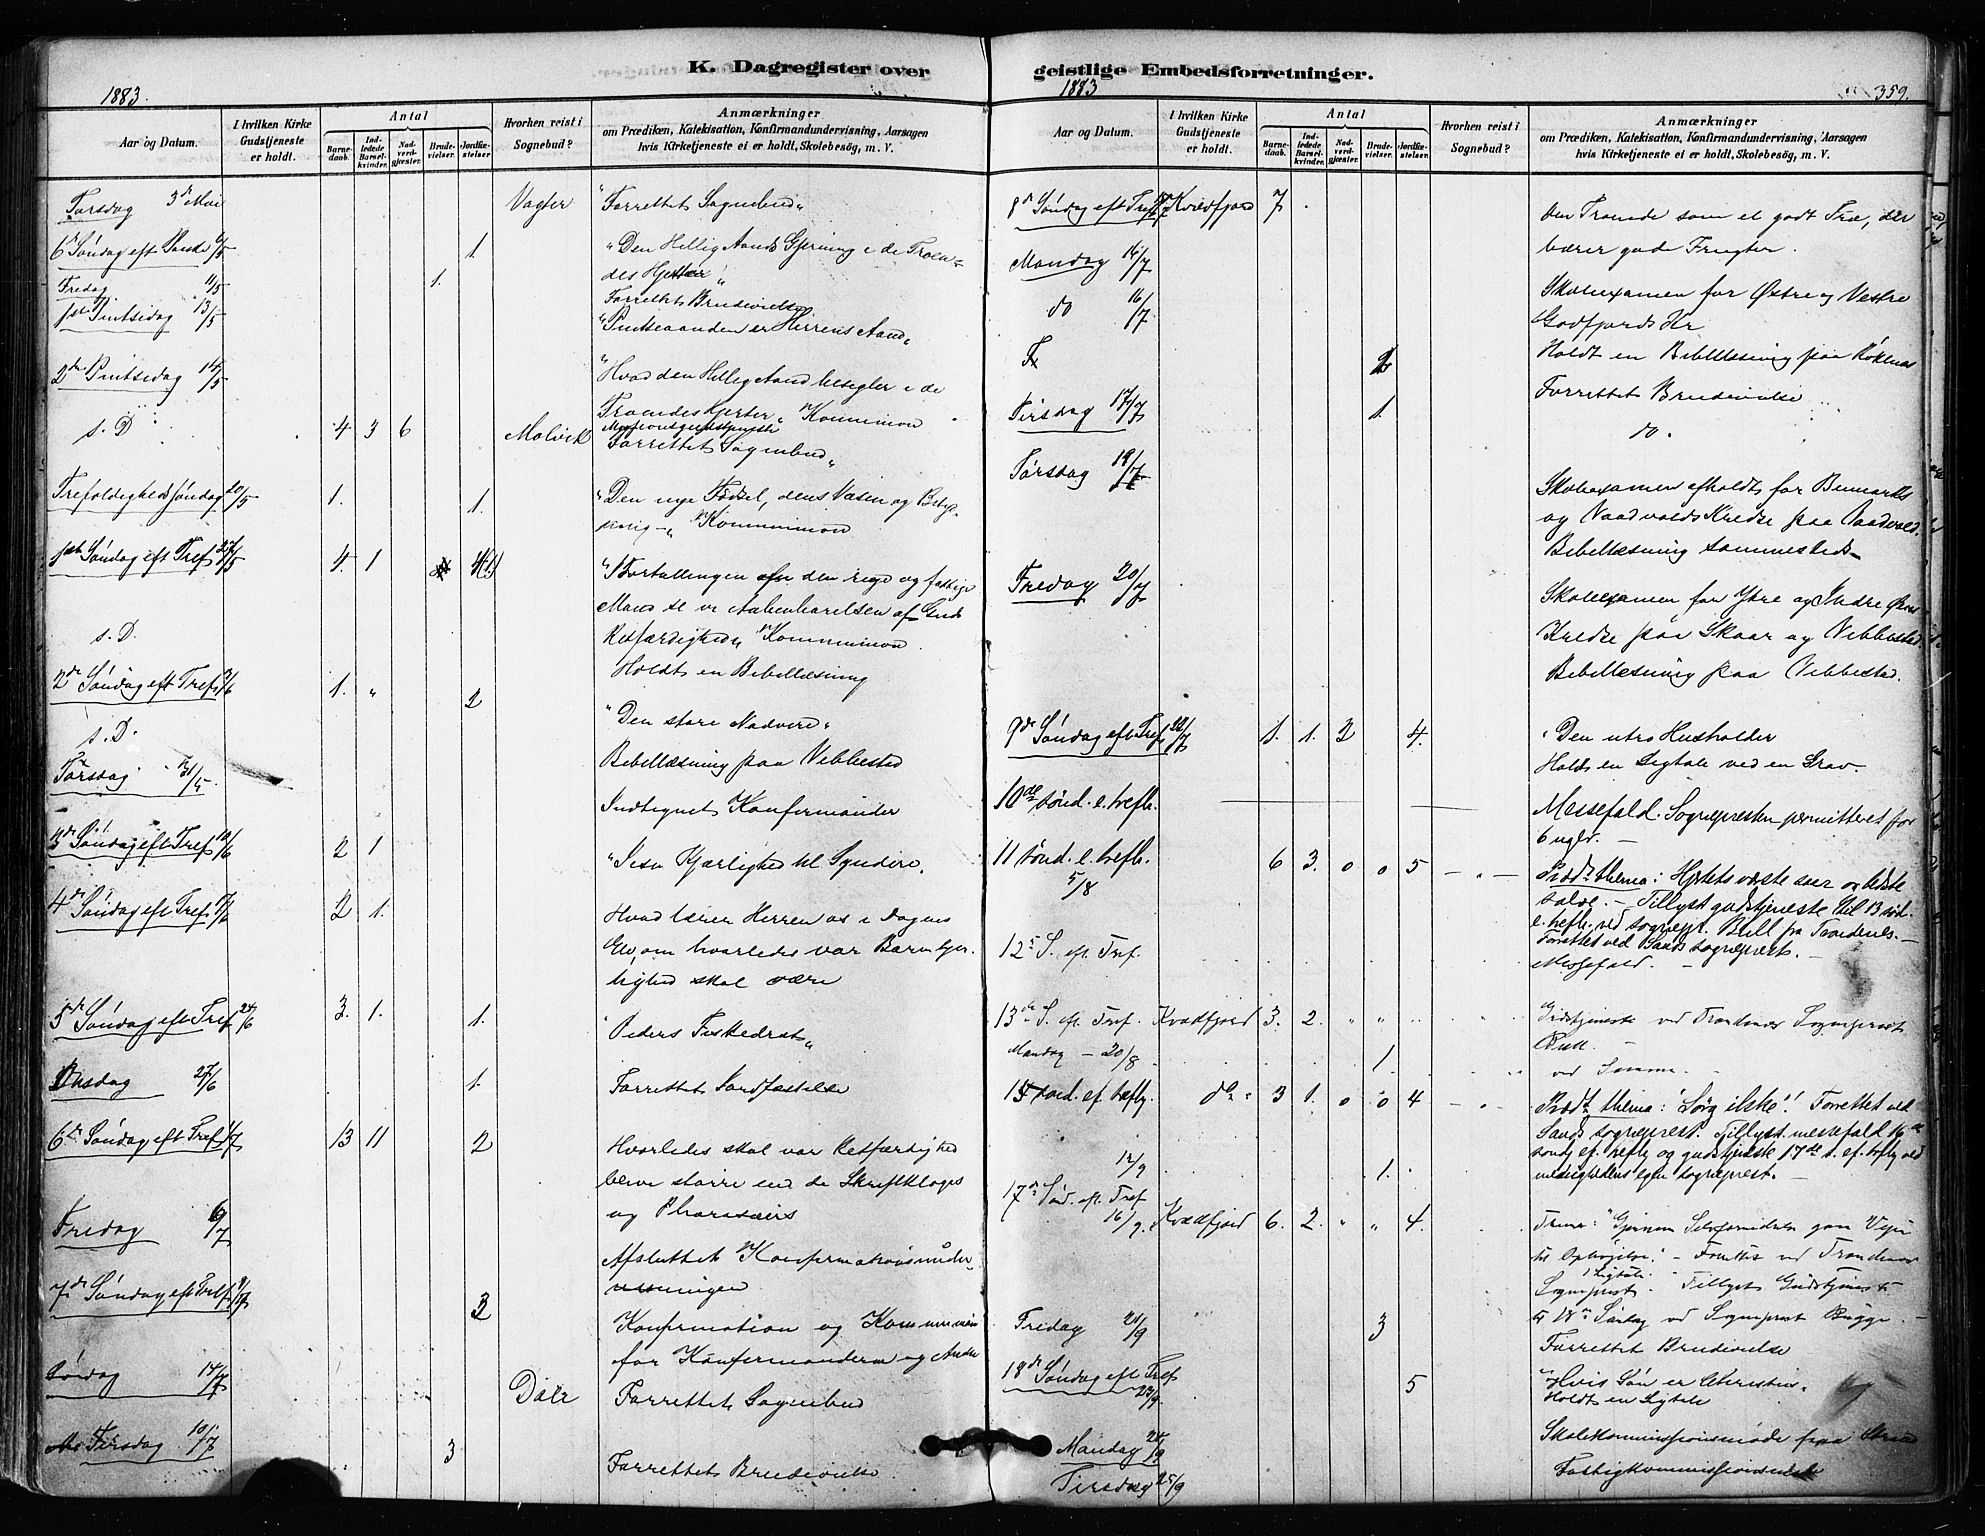 K. Dagregister over
1883.
Aar og Datum.
I hvilken Kirke Gudstjeneste er holdt.
Antal
Barnedaab.
Indledede Barselkvinder.
Nadverdgjæster.
Brudevielser.
Jordfæstelser
Hvorhen reist i Sognebud?
Anmærkninger
om Prædiken, Katekisation, Konfirmandundervisning, Aarsagen
hvis Kirketjeneste ei er holdt, Skolebesøg, m. V.
Torsdag 3die Mai Vagter "Forrettet Sognebud"
6te Søndag eft Paaske 6/5 1 "Den Hellig Aands Gjerning i de Troen=
des Hjerter"
Fredag 11/5 1. Forrettet Brudevielse
1ste Pintsedag 13/5 "Pintseaanden er Herrens Aand"
2den Pintsedag 14/5 "Hvad den Hellig Aand besegler i de
Troendes Hjerter" Kommunion
s. D 4 3 6 Malvik Forrettet Sognebud
Trefoldighedssøndag 20/5 1. 1. "Den nye Fødsel, dens Væsen og Betyd-
ning" Kommunion
1ste Søndag eft Tref 27/5 4. 1 "I Fortællingen om den rige og fattige
Mand se vi Aabenbarelsen af Guds
Retfærdighed" Kommunion
s. D. Holdt en Bibellæsning
2den Søndag eft Tref 3/6 1. " 2 "Den store Nadvere"
s. D. Bibellæsning paa Vebbestad
Torsdag 31/5 Indtegnet Konfirmander
3die Søndag eft Tref 10/6 2 1 "Jesu Kjærlighed til Syndere"
4de Søndag eft Tref 17/6 2 1. Hvad lærer Herren os i Dagens
Ev. om hvorledes vor Barmhjer-
tighed skal være
5te Søndag eft Tref 24/6 3. 1. 1. "Peders Fiskedræt"
Onsdag 27/6 1. Forrettet Jordfæstelse
6te Søndag eft Tref 1/7 13 11 2 Hvorledes skal vor Retfærdighed
blive større end de Skriftkloges
og Pharisæers
Fredag 6/7 Afsluttet Konfirmationsunder-
visningen
7de Søndag eft Tref 8/7 3 Konfirmation og Kommunion
for Konfirmanderne og Andre
Lørdag 14/7 Dale Forrettet Sognebud
Tirsdag 10/7 3 Forrettet Brudevielse
geistlige Embedsforretninger.
1883
359.
Aar og Datum.
I hvilken Kirke Gudstjeneste er holdt.
Antal
Barnedaab.
Indledede Barselkvinder.
Nadverdgjæster.
Brudevielser.
Jordfæstelser.
Hvorhen reist i Sognebud?
Anmærkninger
om Prædiken, Katekisation, Konfirmandundervisning, Aarsagen
hvis Kirketjeneste ei er holdt, Skolebesøg, m. V.
8de Søndag eft Tref Kvædfjord 7 Den Troende som et godt Træ, der
bærer gode Frugter.
Mandag 16/7 Skoleexamen for Østre og Vestre
Godfjords Kr
do 16/7 Holdt en Bibellæsning paa Røkenes
Forrettet Brudevielse
Tirsdag 17/7 1. do.
Torsdag 19/7 Skoleexamen afholdt for
og Vaadvolds Kredse paa Vaadvold.
Bibellæsning sammesteds
Fredag 20/7 Skoleexamen for Ytre og Indre
Kredse paa Skaar og Vebbestad.
Bibellæsning paa Vebbestad.
9de Søndag eft Tref 22/7 1. 1. 2 4. "Den utro Husholder
Holdt en Ligtale ved en Grav.
10de sønd. e. trefh. Messefald. Sognepresten permitteret for
6 uger.
11 sønd. e. trefh. 5/8 6 3. 0 0 5 Præd. thema: Hjertets værste saar og bedste
salve. — Tillyst gudstjeneste til 13 sød.
e. trefh. ved sognepr. Bull fra Trondenes. —
Forrettet ved Sands sogneprest. —
12te S. eft. Tref. Messefald. —
13de S. eft. Tref. Kvædfjord 3. 2. " " Gudstjeneste ved Trondenes Sogneprest
Bull. —
Mandag — 20/8 1. ved Samme. —
15 sønd. ef. trefh. do 3 1. 0 0 4 Præd. thema: "Sørg ikke"! Forrettet ved
Sands sogneprest. Tillyst messefald 16de
sønd. ef. trefh. og gudstjeneste 17de s. ef. trefh. ved
menighedens egen sogneprest.
12/9 1.
17de Sønd. eft. Tref 16/9. Kvædfjord 6. 2. " " 4. Tema: "Gjennem Selvfornedrelse gaar Veien
til Ophøielse". — Forrettet ved Trondenes
Sogneprest. 1 Ligtale. Tillyst Gudstjeneste
til 18de Søndag ved Sogneprest Bugge. —
Fredag 21/9 3 Forrettet Brudevielse
18de Søndag eft Tref 23/9 5 "Hvis Søn er Christus"
Holdt en Ligtale
Mandag 24/9 Skolekommissionsmøde paa
Tirsdag 25/9 Fattigkommissionsmøde